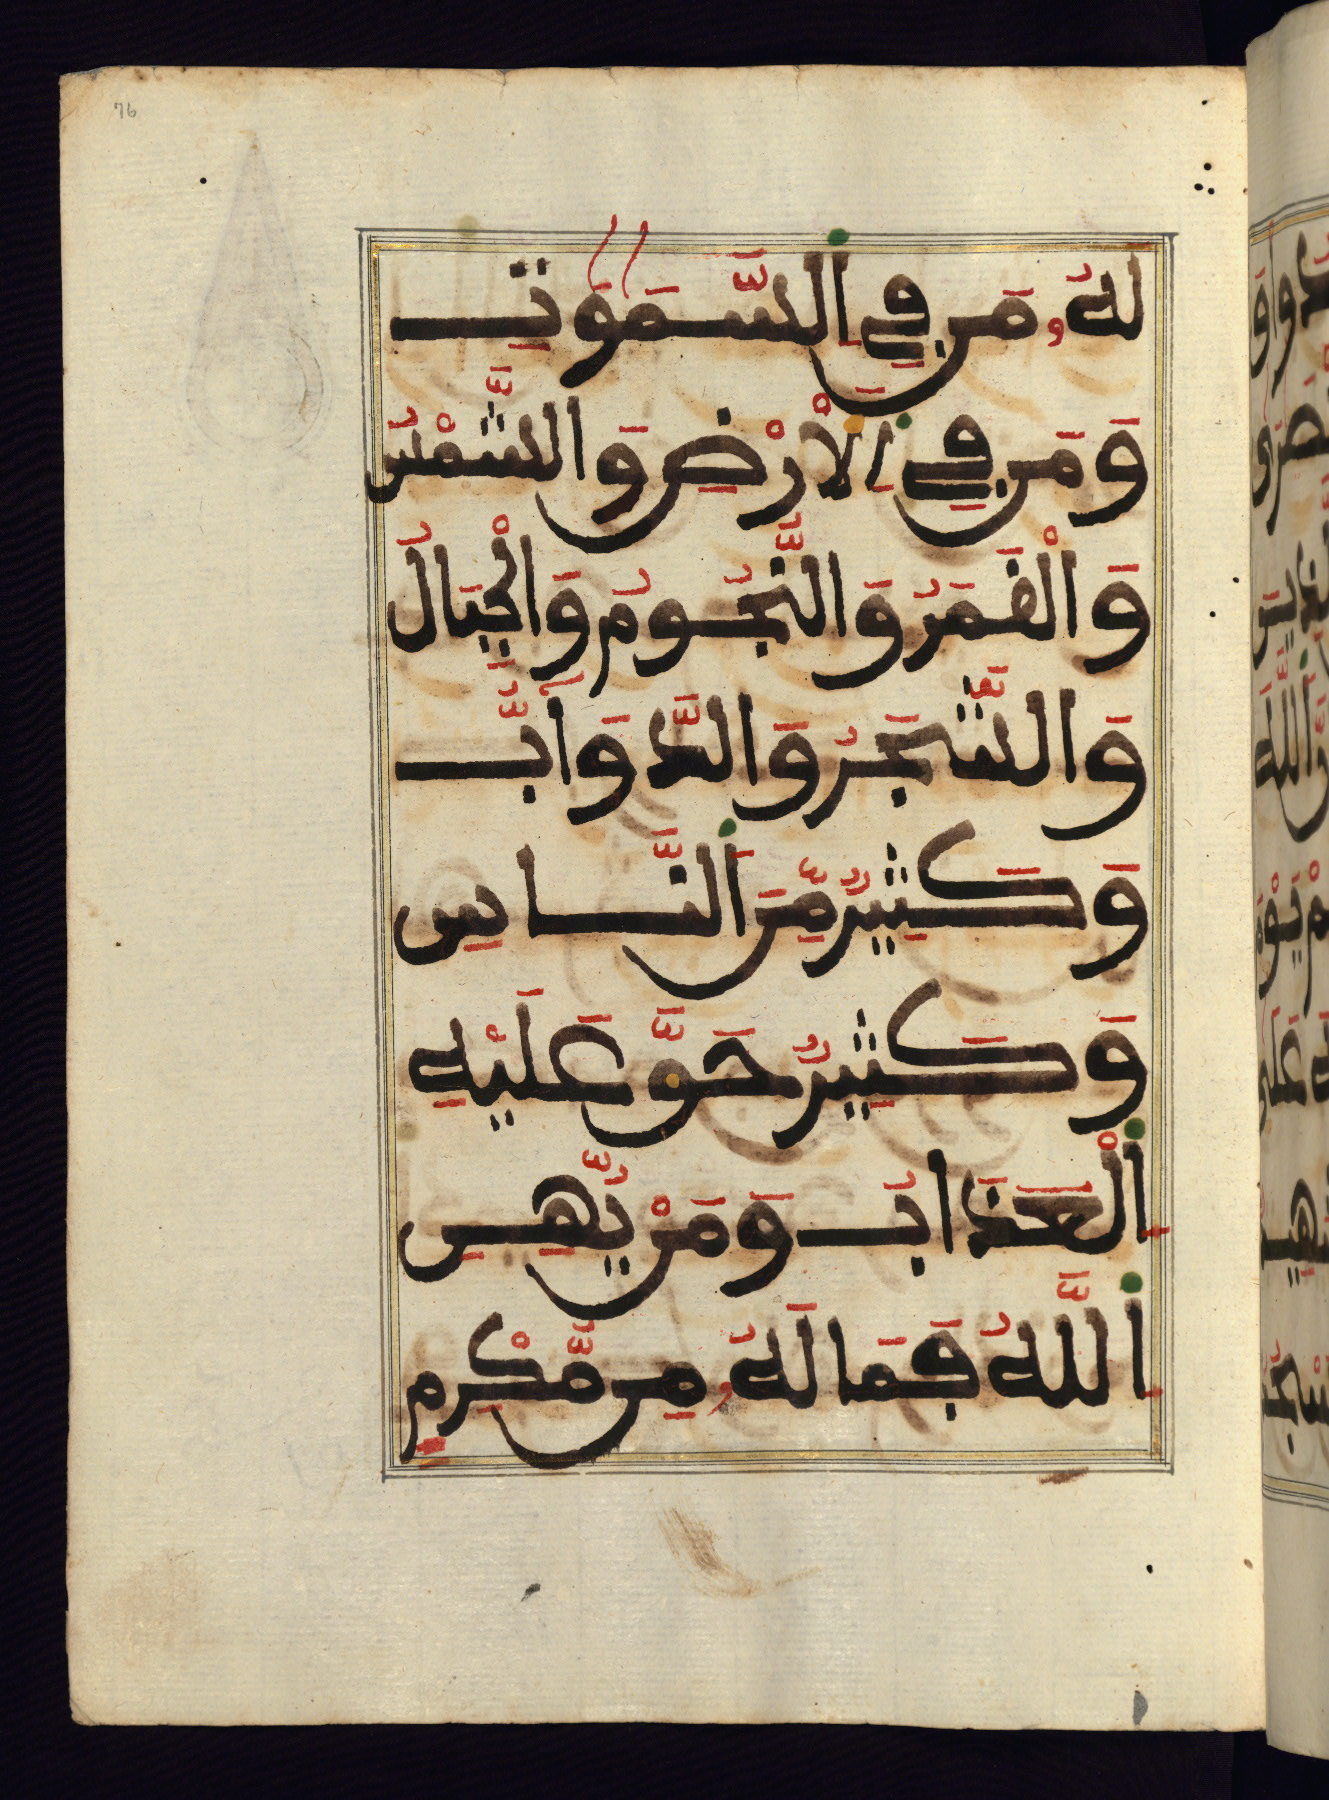 76
لَهُۥ مَن فِي اِ۬لسَّمَٰوَٰتِ
وَمَن فِي اِ۬لَارْضِ وَالشَّمْسُ
وَالْقَمَرُ وَالنُّجُومُ وَالْجِبَالُ
وَالشَّجَرُ وَالدَّوَآبُّ
وَكَثِيرٌ مِّنَ اَ۬لنَّاسِ
وَكَثِيرٌ حَقَّ عَلَيْهِ
اِ۬لْعَذَابُ وَمَنْ يُّهِنِ
اِ۬للَّهُ فَمَا لَهُۥ مِن مُّكْرِمٍ